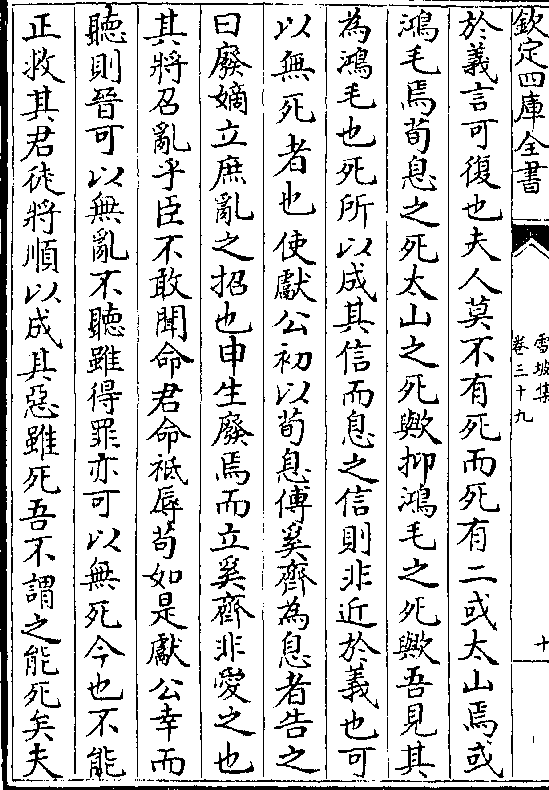 欽定四庫全書
雪坡集
卷三十九
十
於義言可復也夫人莫不有死而死有二或太山焉或
鴻毛焉荀息之死太山之死歟抑鴻毛之死歟吾見其
為鴻毛也死所以成其信而息之信則非近於義也可
以無死者也使獻公初以荀息傅奚齊為息者告之
曰廢嫡立庶亂之招也申生廢焉而立奚齊非愛之也
其將召亂乎臣不敢聞命君命祇辱苟如是獻公幸而
聽則晉可以無亂不聽雖得罪亦可以無死今也不能
正救其君徒將順以成其惡雖死吾不謂之能死矣夫